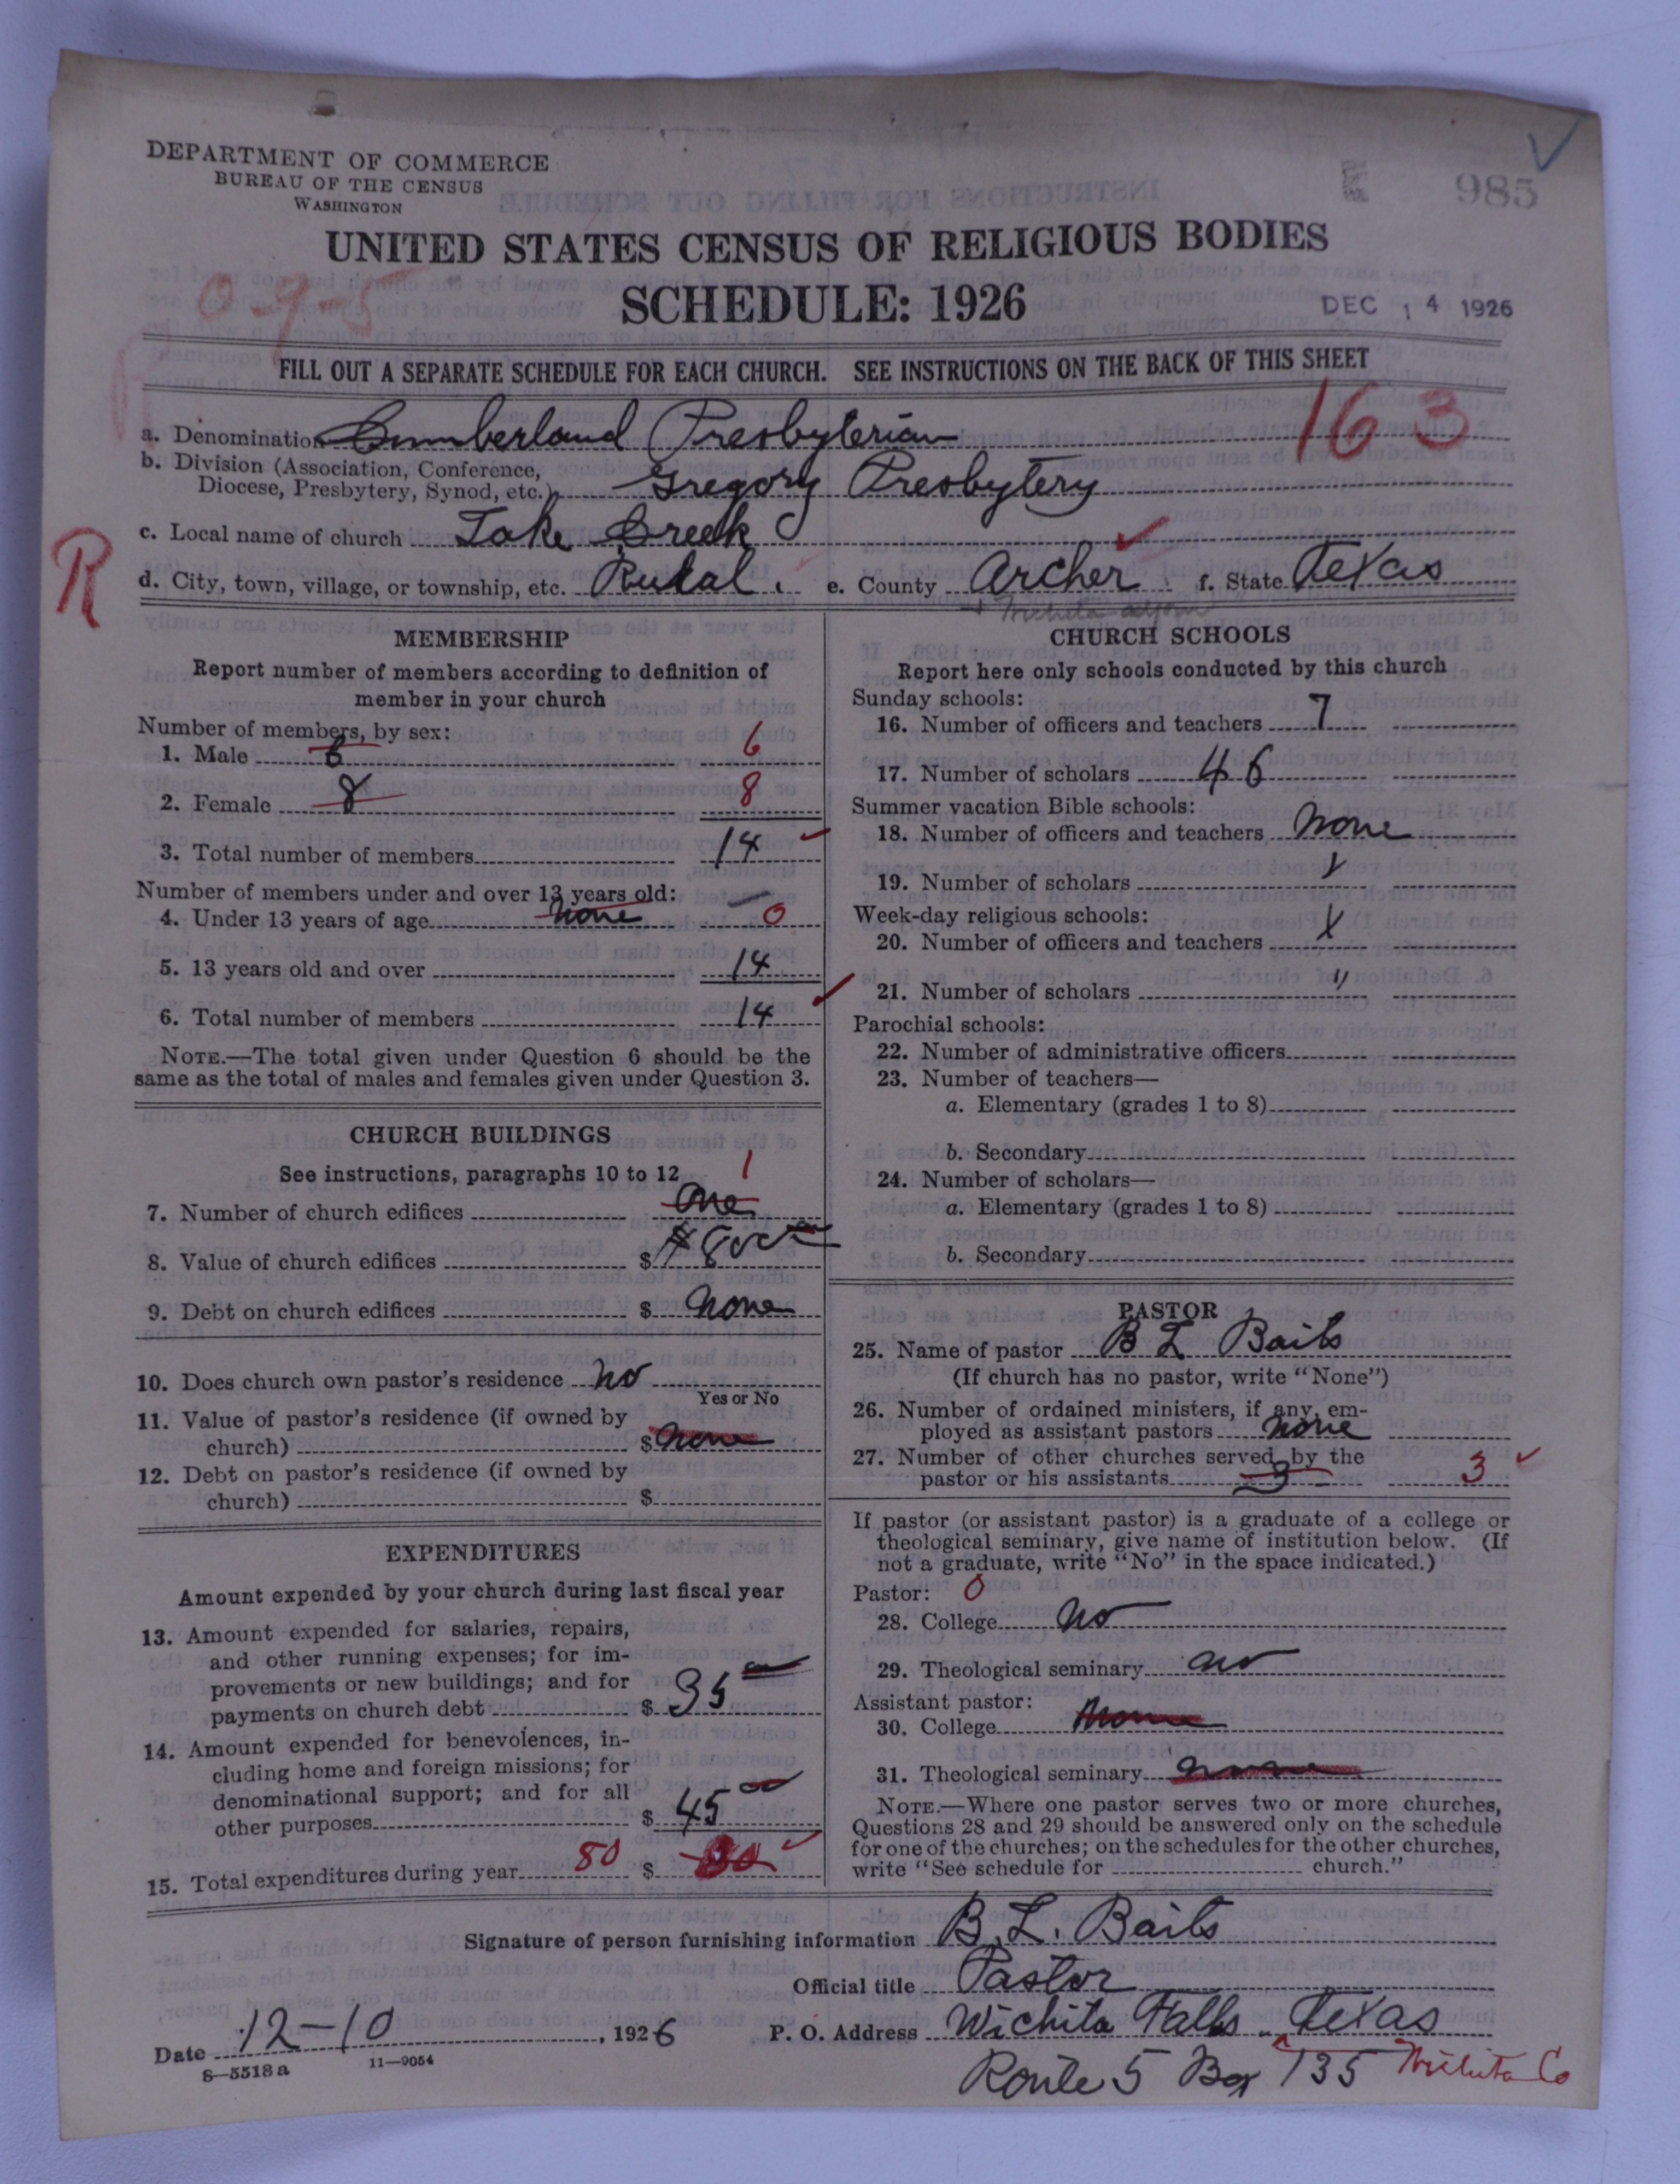 DEPARTMENT OF COMMERCE
BUREAU OF THE CENSUS
WASHINGTON
985
UNITED STATES CENSUS OF RELIGIOUS BODIES
SCHEDULE: 1926
0-9-5
DEC 14 1926
FILL OUT A SEPARATE SCHEDULE FOR EACH CHURCH. SEE INSTRUCTIONS ON THE BACK OF THIS SHEET
163
a. Denomination Cumberland Presbyterian
b. Division (Association, Conference,
Diocese, Presbytery, Synod, etc.) Gregory Presbytery
c. Local name of church Lake Creek
R
d. City, town, village, or township, etc. Rural. e. County Archer f. State Texas
MEMBERSHIP
Report number of members according to definition of
member in your church
Number of members, by sex:
1. Male 6 6
2. Female 8 8
3. Total number of members 14
Number of members under and over 13 years old:
4. Under 13 years of age none 0
5. 13 years old and over 14
6. Total number of members 14
NOTE.—The total given under Question 6 should be the
same as the total of males and females given under Question 3.
CHURCH BUILDINGS
See instructions, paragraphs 10 to 12
1
7. Number of church edifices One
8. Value of church edifices $
9. Debt on church edifices $ none
10. Does church own pastor's residence no
Yes or No
11. Value of pastor's residence (if owned by
church) $ none
12. Debt on pastor's residence (if owned by
church) $
EXPENDITURES
Amount expended by your church during last fiscal year
13. Amount expended for salaries, repairs,
and other running expenses; for im-
provements or new buildings; and for
payments on church debt $ 35 00
14. Amount expended for benevolences, in-
cluding home and foreign missions; for
denominational support; and for all
other purposes $ 45 00
15. Total expenditures during year 80 $ 80
CHURCH SCHOOLS
Report here only schools conducted by this church
Sunday schools:
16. Number of officers and teachers 7
17. Number of scholars 46
Summer vacation Bible schools:
18. Number of officers and teachers none
19. Number of scholars "
Week-day religious schools:
20. Number of officers and teachers "
21. Number of scholars "
Parochial schools:
22. Number of administrative officers
23. Number of teachers—
a. Elementary (grades 1 to 8)
b. Secondary
24. Number of scholars—
a. Elementary (grades 1 to 8)
b. Secondary
PASTOR
25. Name of pastor B L Baits
(If church has no pastor, write "None")
26. Number of ordained ministers, if any, em-
ployed as assistant pastors none
27. Number of other churches served by the
pastor or his assistants 3 3
If pastor (or assistant pastor) is a graduate of a college or
theological seminary, give name of institution below. (If
not a graduate, write "No" in the space indicated.)
Pastor: 0
28. College no
29. Theological seminary no
Assistant pastor:
30. College None
31. Theological seminary none
NOTE.—Where one pastor serves two or more churches,
Questions 28 and 29 should be answered only on the schedule
for one of the churches; on the schedules for the other churches,
write "See schedule for church."
Signature of person furnishing information B. L. Baits
Official title Pastor
Date 12-10, 1926 P. O. Address Wichita Falls Texas
8-5518a 11-9054
Route 5 Box 135 Wichita Co